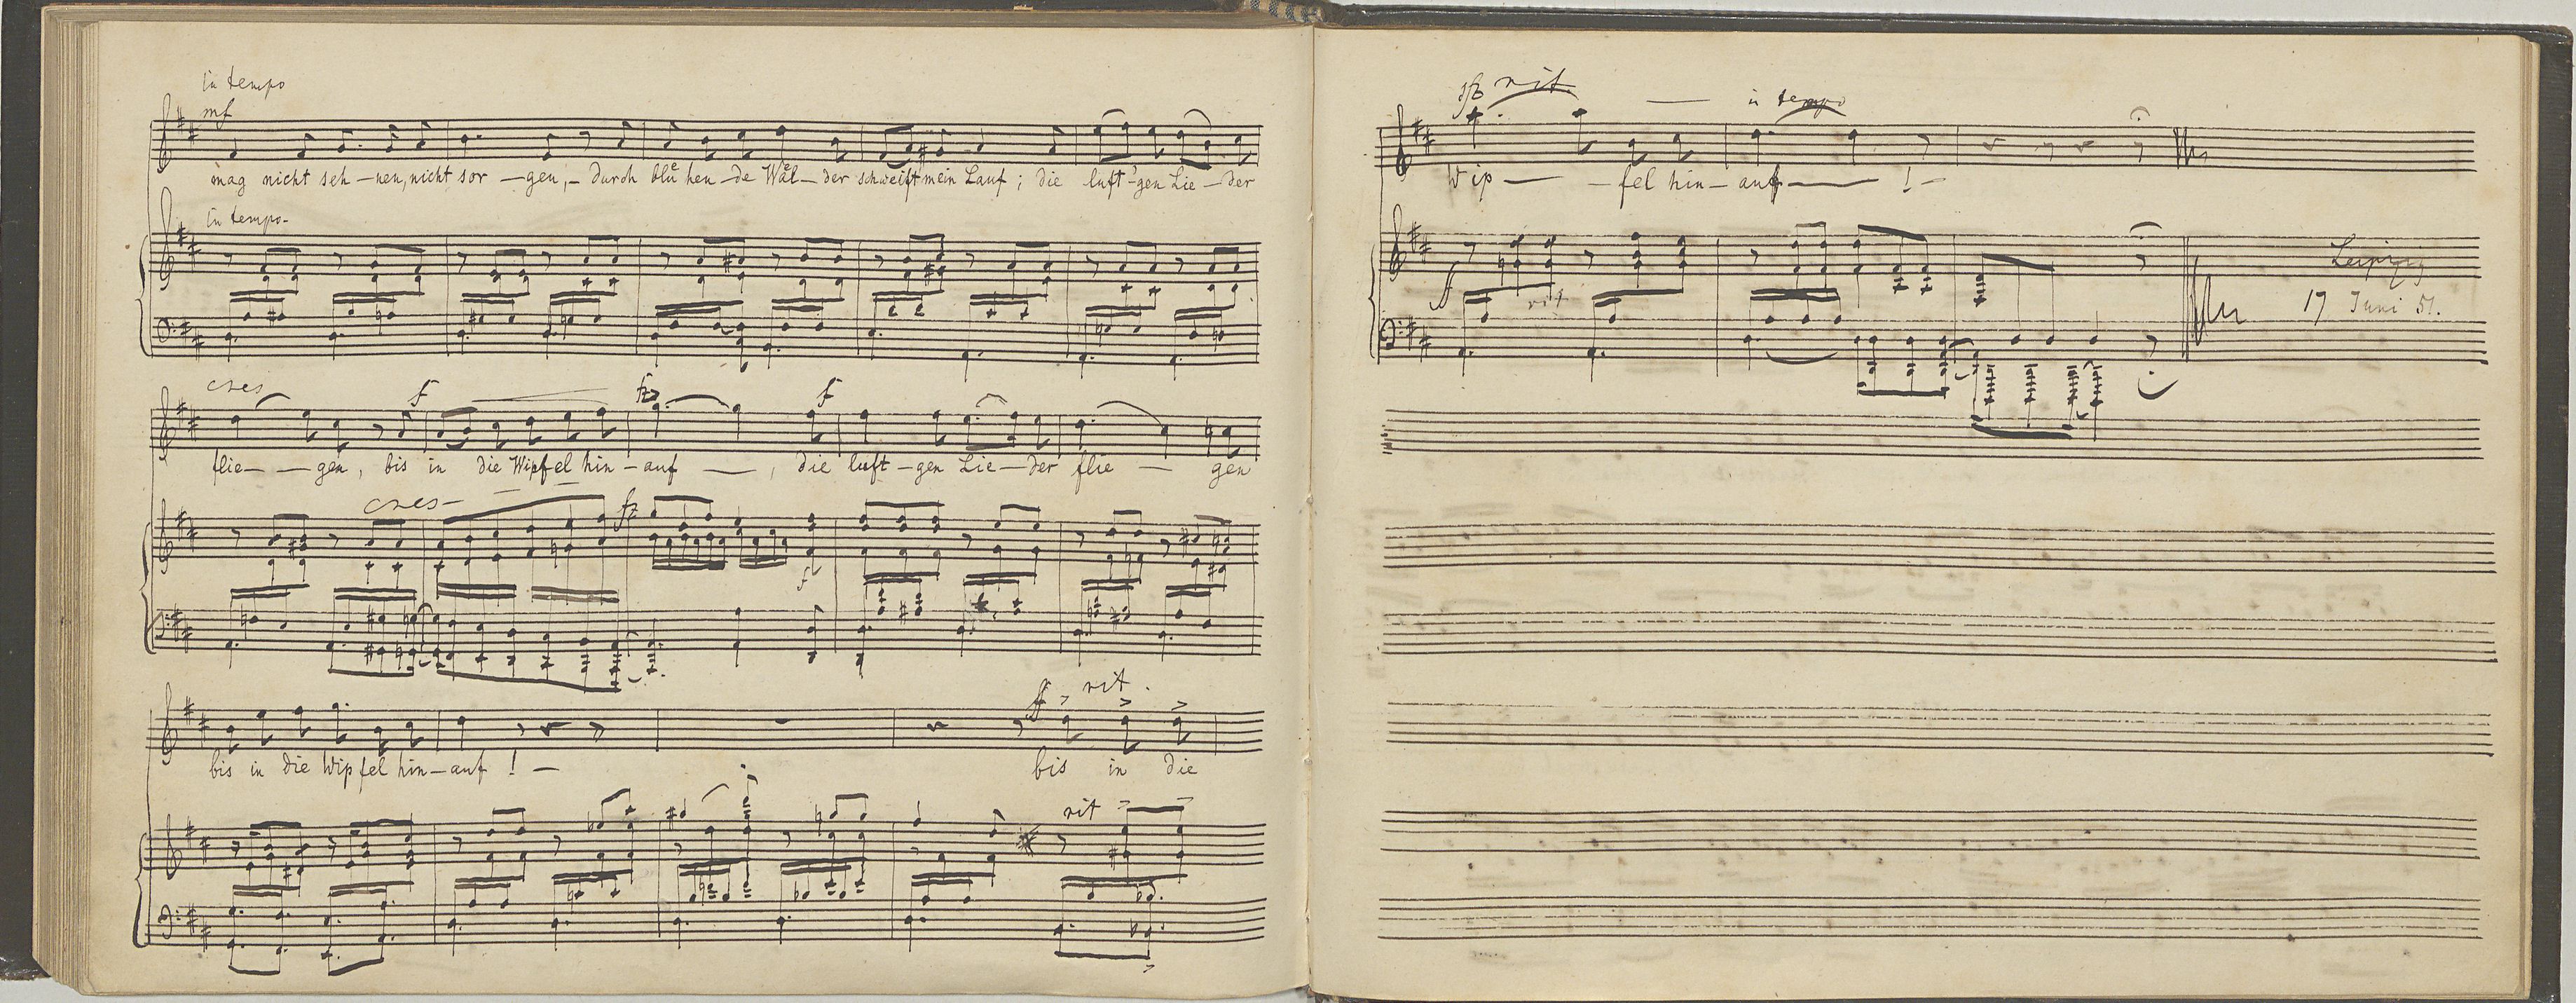 in tempo
mf
mag nicht seh-nen, nicht sor-gen,- durch blü hen-de Wäl-der schweift mein Lauf; die luft'gen Lie-der
in tempo-
cres f fz f
flie--gen, bis in die Wipfel hin-auf -, die luft-gen Lie-der flie - gen
cres- fz
f
ff rit.
bis in die Wipfel hin-auf! - bis in die
rit
sfz rit. - in tempo
Wip--fel hin-auf-!-
ff rit
Leipzig
17 Juni 51.